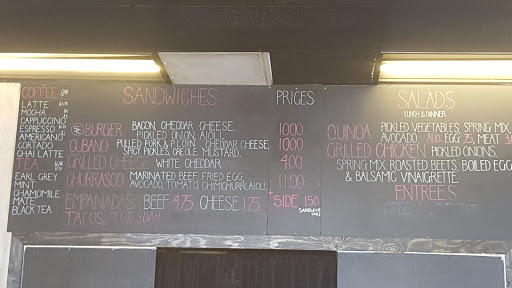 COFFEE
LATTE
MOCHA
CAPPUCCINO
ESPRESSO
AMERICANO
CORTADO
CHAI LATTE
TEA
EARL GREY
MINT
CHAMOMILE
MATE
BLACK TEA
SANDWICHES PRICES
BURGER BACON, CHEDDAR CHEESE, 1000
PICKLED ONION, AIOLI.
CUBANO PULLED PORK & P.LOIN, CHEDDAR CHEESE, 1000
SPICY PICKLES, CREOLE MUSTARD.
GRILLED CHEESE WHITE CHEDDAR 4.00
CHURRASCO MARINATED BEEF, FRIED EGG, 11.00
AVOCADO, TOMATO, CHIMICHURRI, AIOLI
EMPANADAS BEEF 4.75 CHEESE 1.75
SIDE 1.50
TACOS, TUESDAY
SALADS
LUNCH & DINNER
QUINOA PICKLED VEGETABLES, SPRING MIX,
AVOCADO, EGG .75, MEAT
GRILLED CHICKEN PICKLED ONIONS,
SPRING MIX, ROASTED BEETS, BOILED EGG
& BALSAMIC VINAIGRETTE.
ENTREES